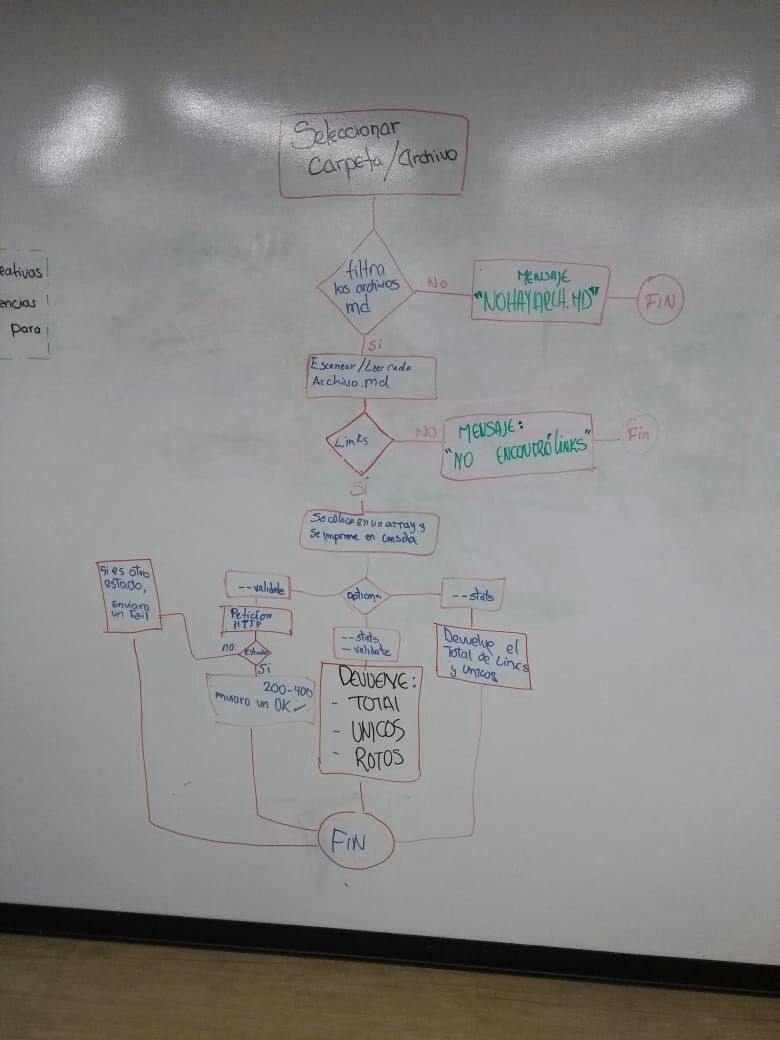 Seleccionar
Carpeta/archivo
eativas
encias
para
filtra
los archivos
md
No
MENSAJE
"NOHAYARCH.MD"
FIN
Si
Escanear/Leer cada
Archivo.md
Links
NO
MENSAJE:
"NO ENCONTRÓ LINKS"
Fin
SI
Se coloca en un array y
Se imprime en consola
Si es otro
estado,
Enviara
un fail
--validate
options
--stats
Peticion
HTTP
no
Estado
Si
200-400
enviara un OK ✓
--stats
-validate
DEVUELVE:
- TOTAL
- UNICOS
- ROTOS
Devuelve el
Total de Lincs
y unicos
FIN